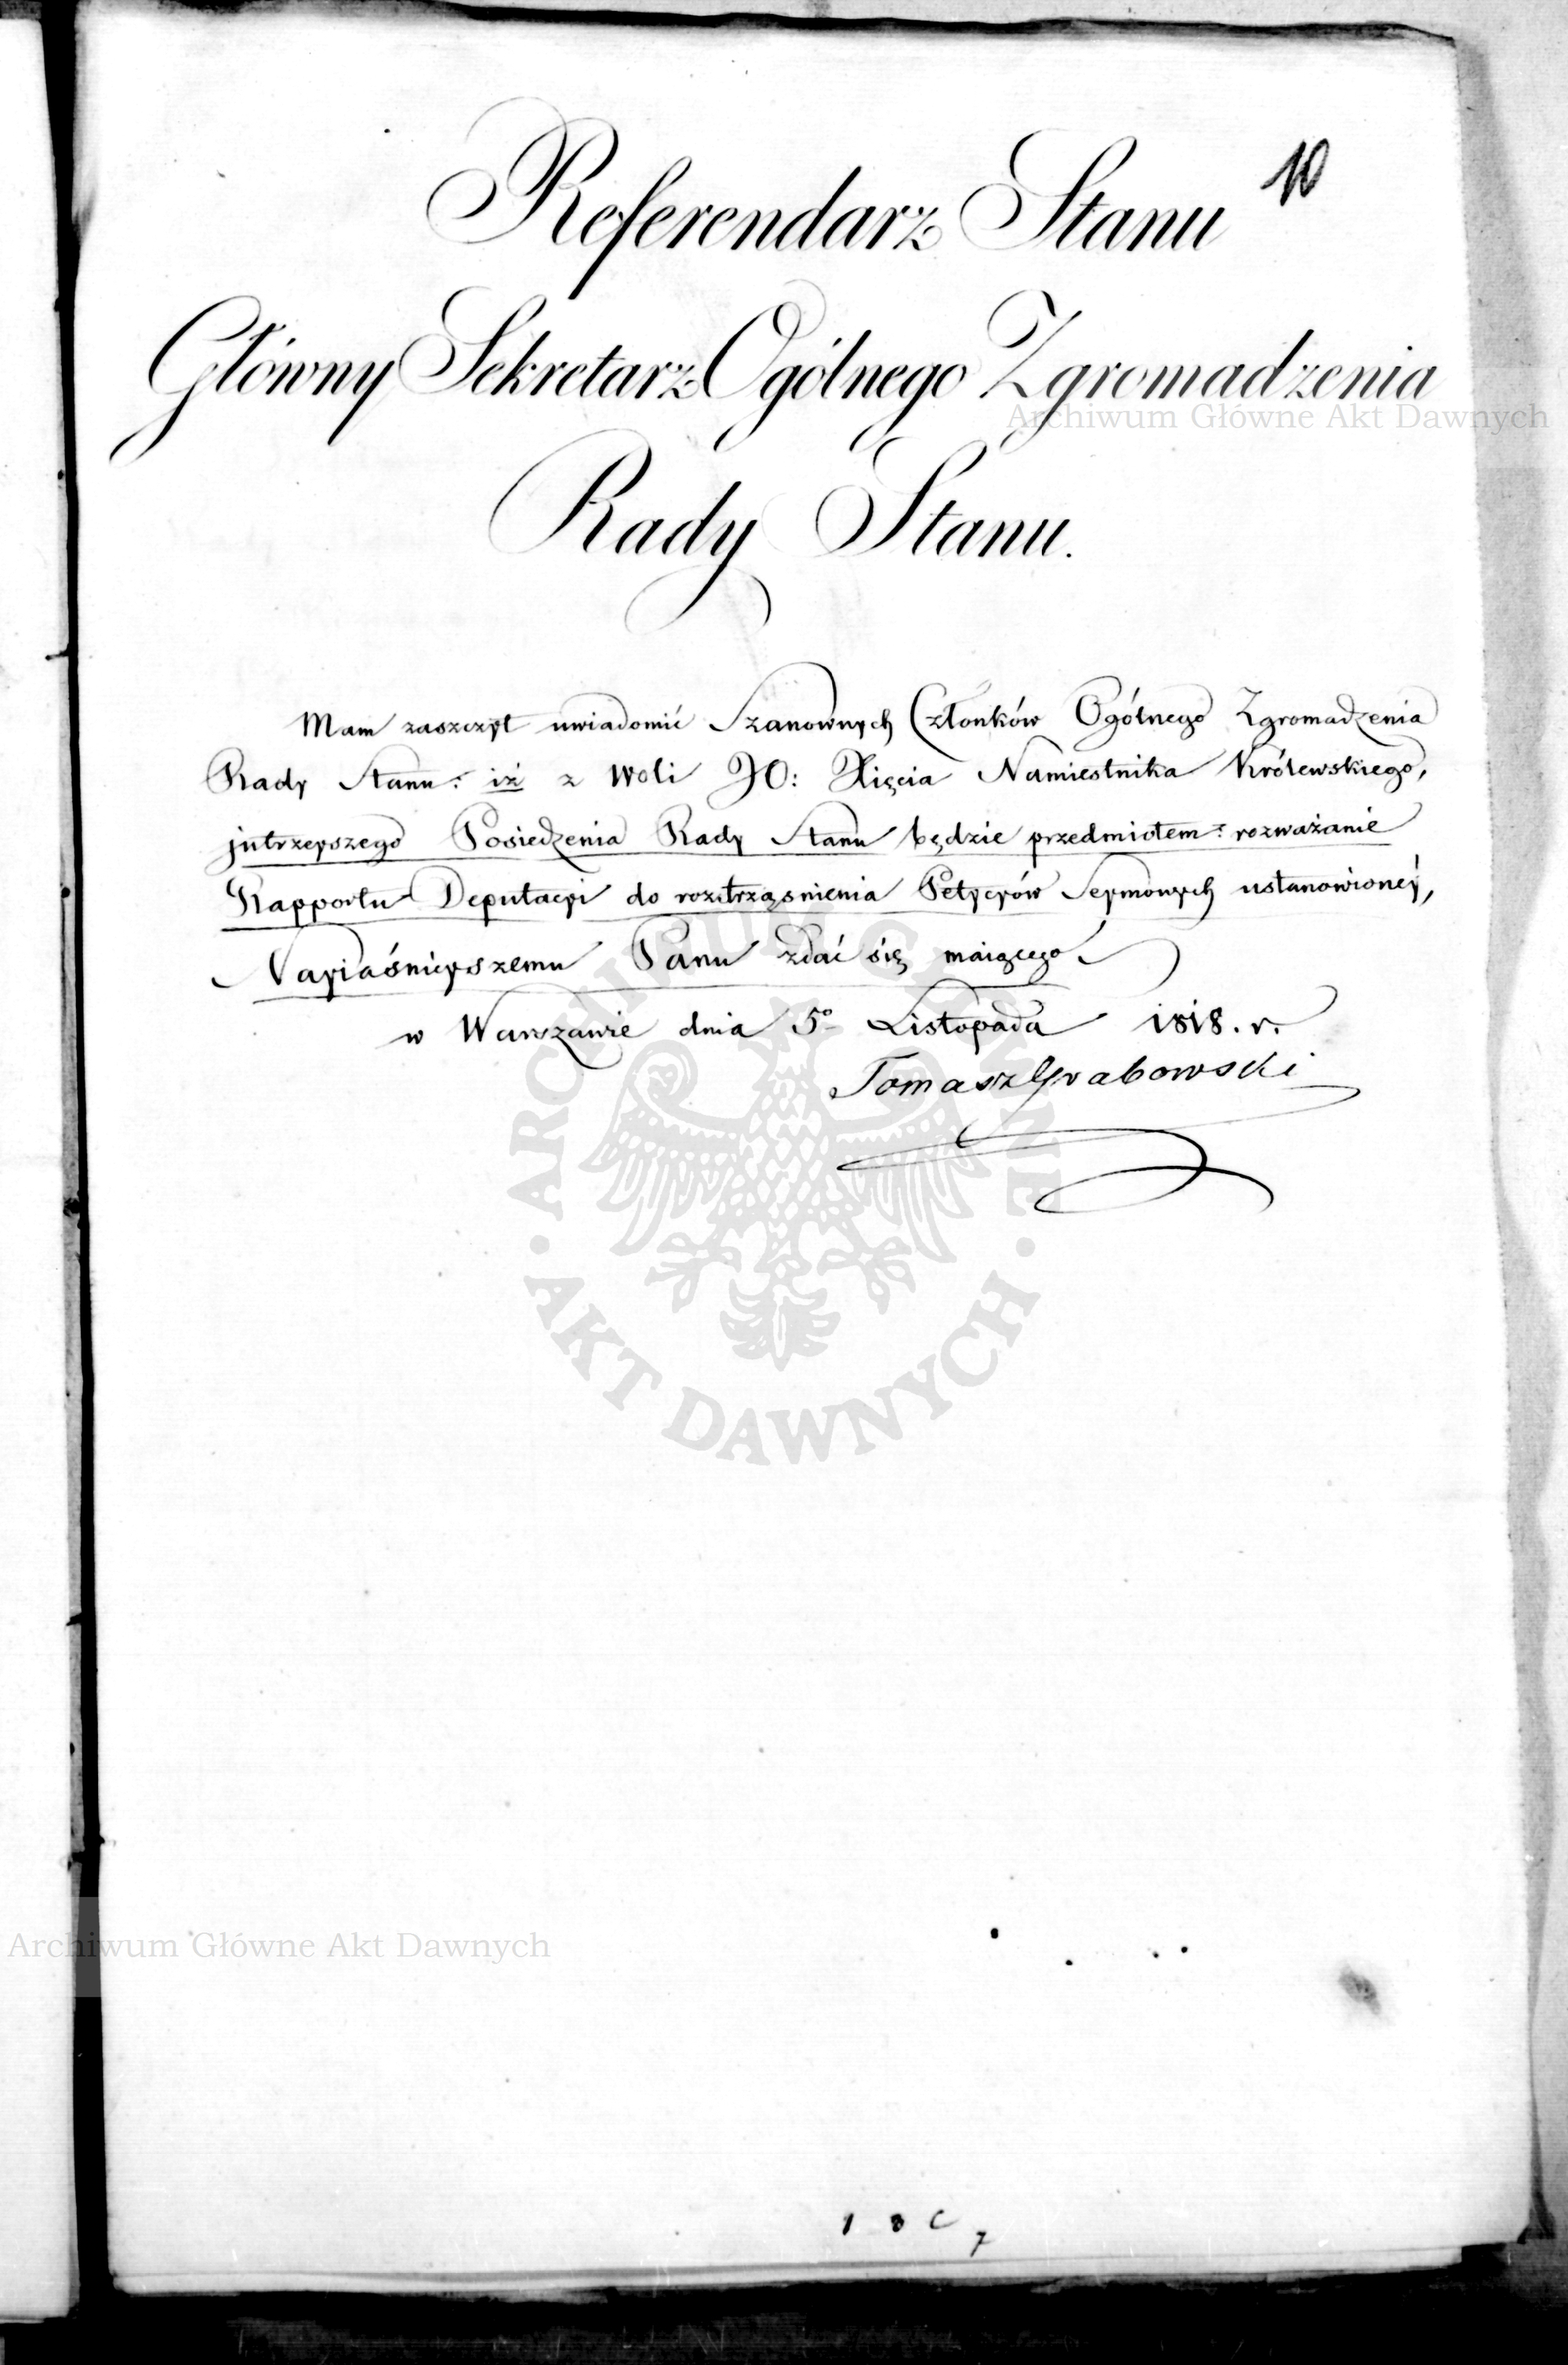 10
Referendarz Stanu
Główny Sekretarz Ogólnego Zgromadzenia
Rady Stanu.
Mam zaszczyt uwiadomić Szanownych Członków Ogólnego Zgromadzenia
Rady Stanu: iż z Woli JO: Xięcia Namiestnika Królewskiego,
jutrzeyszego Posiedzenia Rady Stanu będzie przedmiotem: rozważanie
Rapportu Deputacyi do roztrząśnienia Petycyów Seymowych ustanowioney,
Nayiaśnieyszemu Panu zdać się maiącego
w Warszawie dnia 5º Listopada 1818. r.
Tomasz Grabowski
Archiwum Główne Akt Dawnych
ARCHIWUM GŁÓWNE
AKT DAWNYCH
Archiwum Główne Akt Dawnych